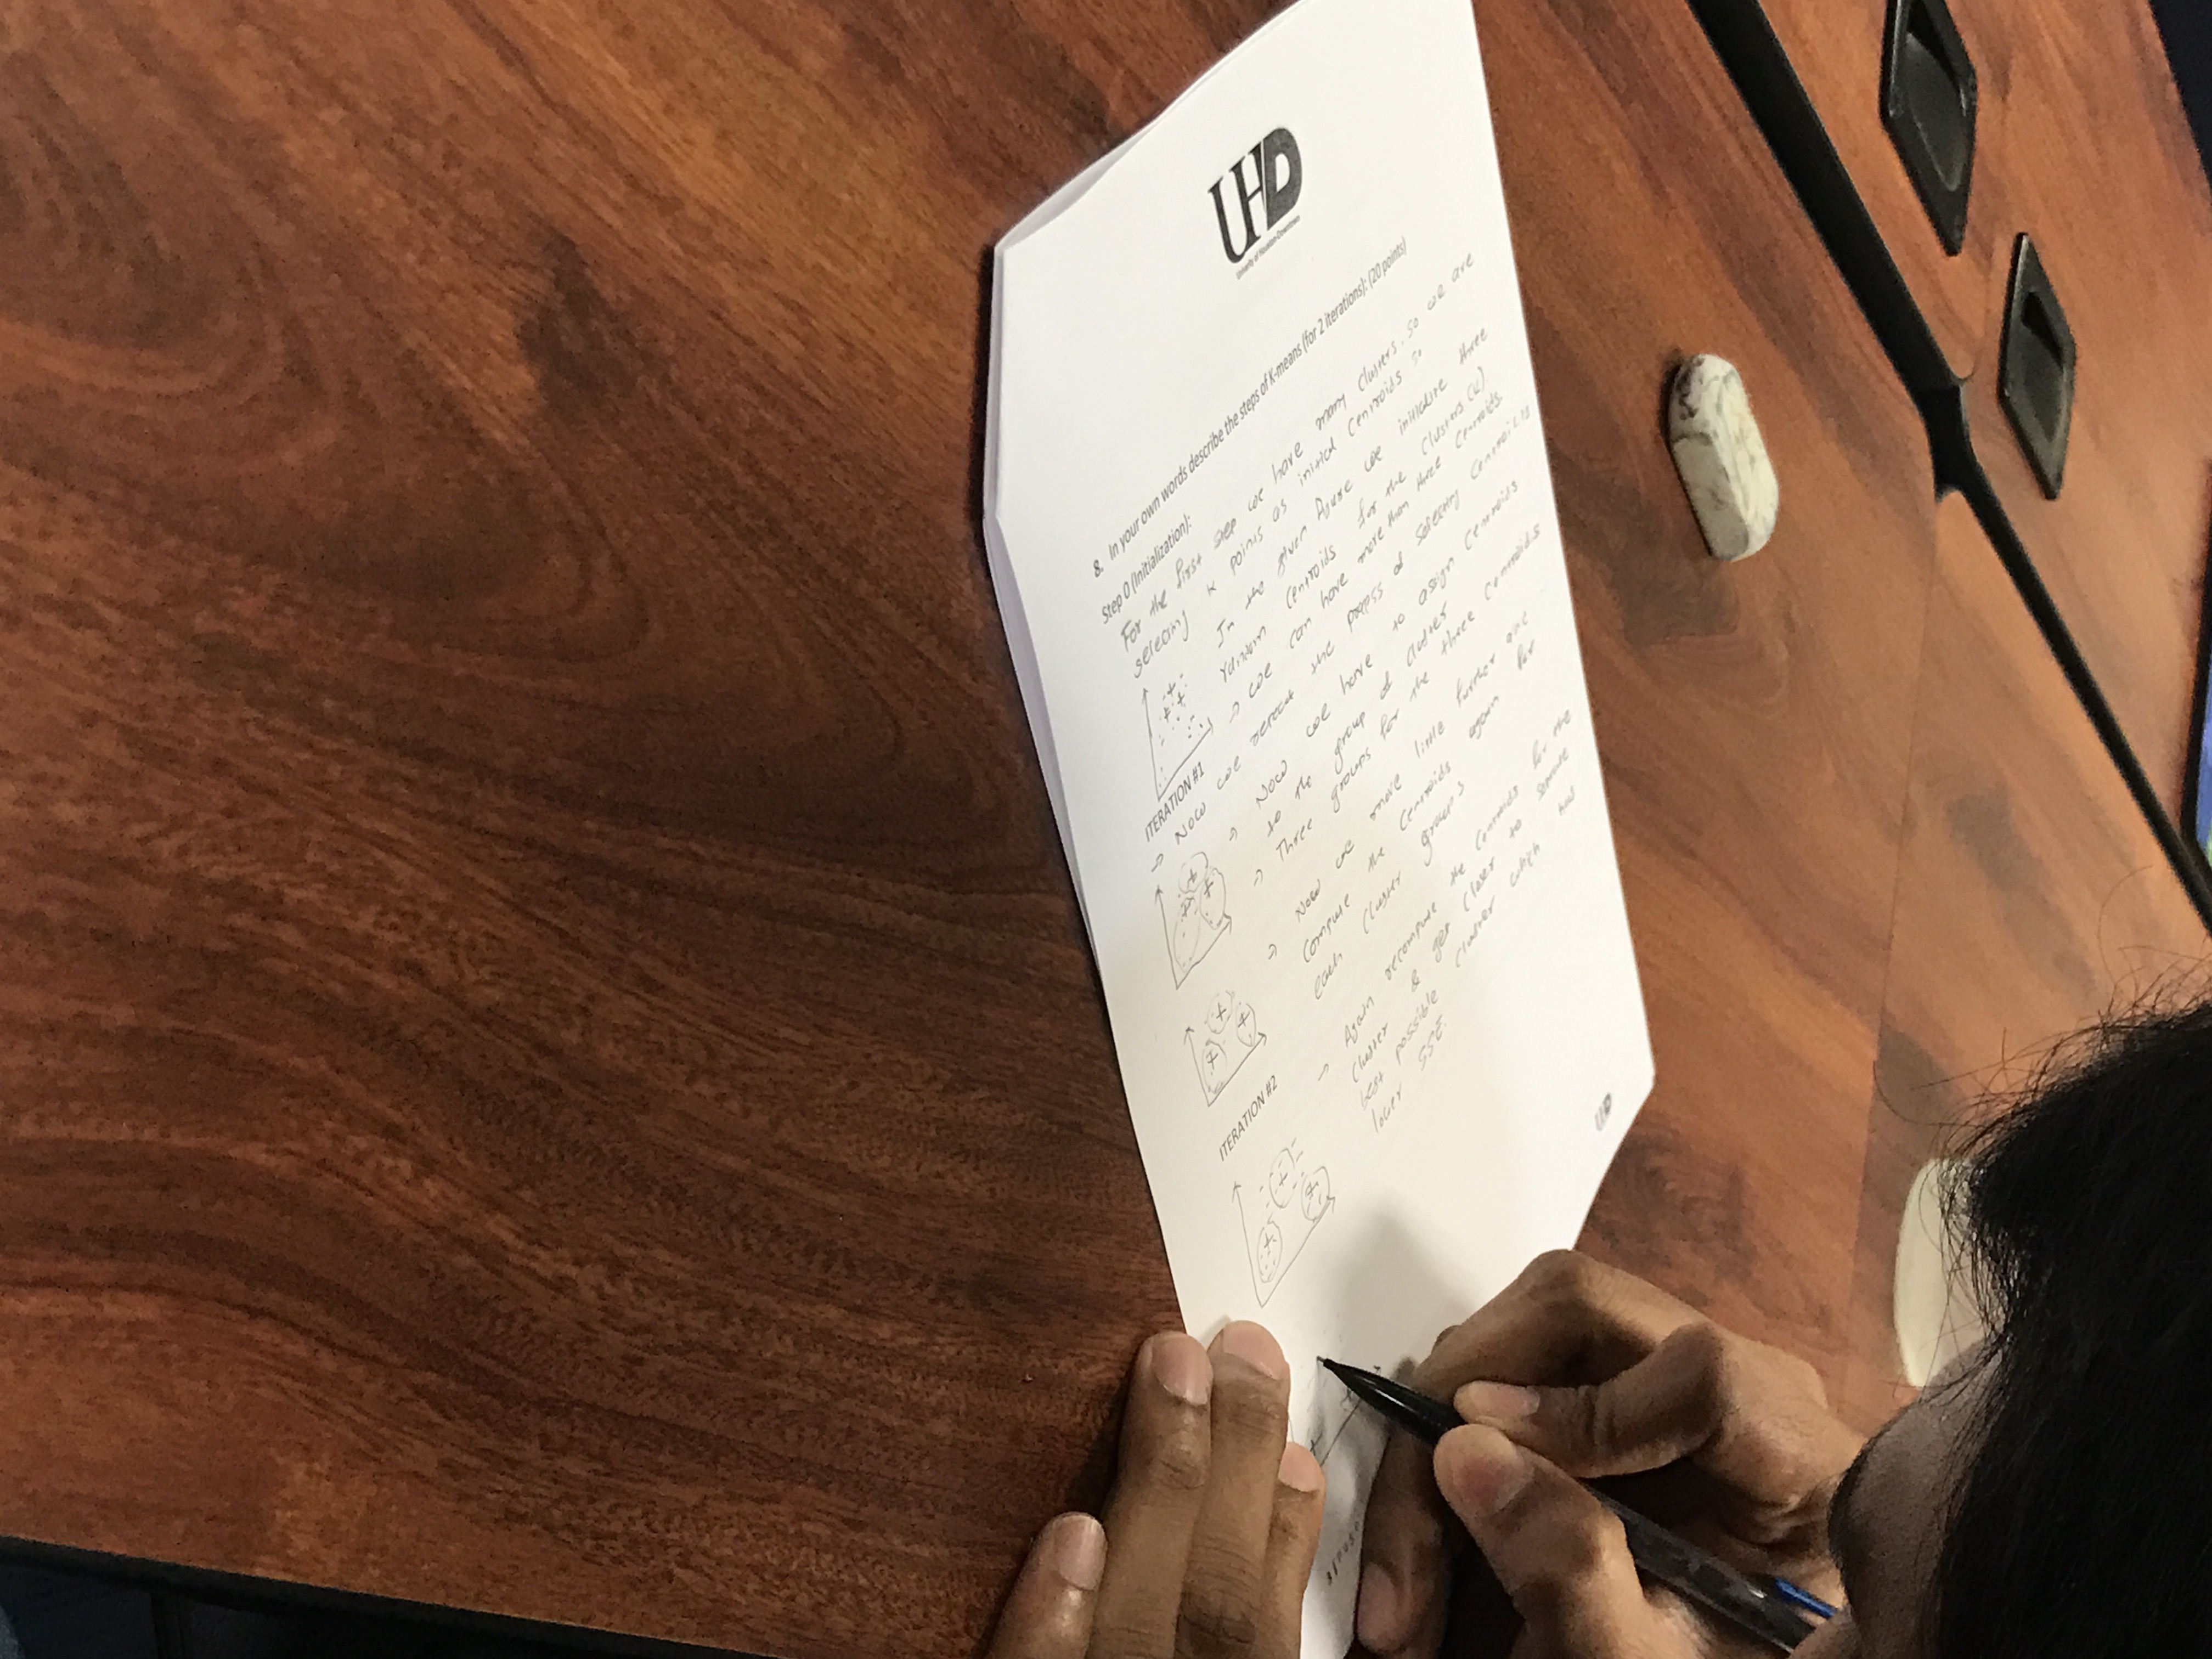 UHD
University of Houston-Downtown
8. In your own words describe the steps of K-means (for 2 iterations): (20 points)
Step 0 (Initialization):
For the first step we have many clusters. so we are
selecting K points as initial centroids so
In the given figure we initialize three
centroids for the clusters (k)
→ we can have more than three centroids.
ITERATION #1
→ Now we repeat the process of selecting centroids
→ Now we have to assign centroids
to the group of cluster
→ Three groups for the three centroids
→ Now we move little further and
compute the centroids again for
each cluster groups
ITERATION #2
→ Again recompute the centroids for the
cluster & get closer to separate
best possible cluster which has
lower SSE.
UHD